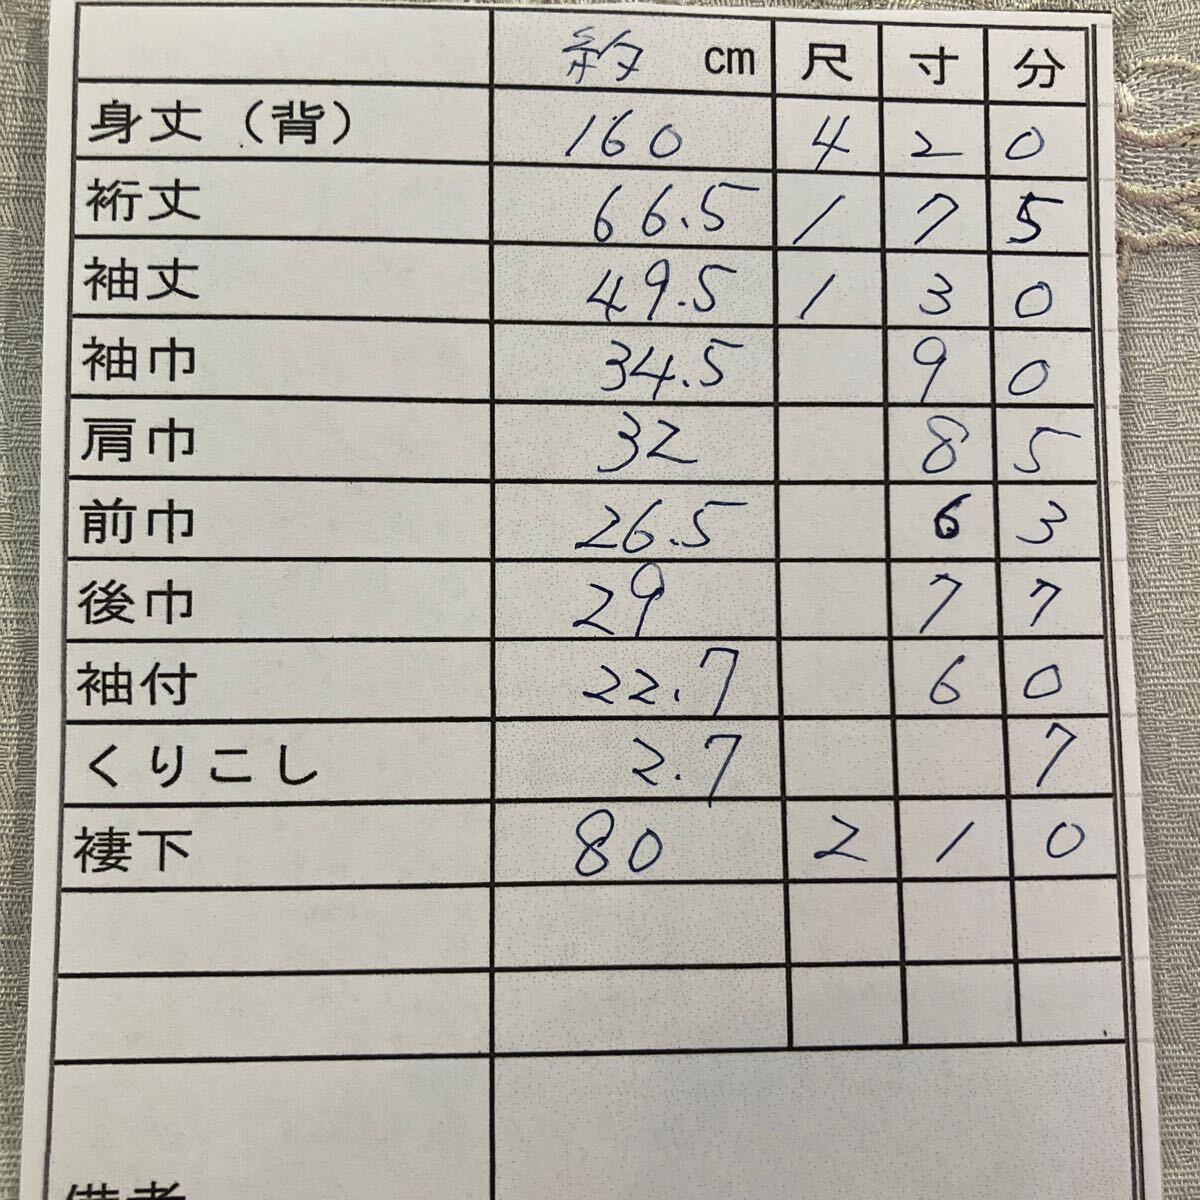 約 cm 尺 寸 分
身丈（背） 160 4 2 0
裄丈 66.5 1 7 5
袖丈 49.5 1 3 0
袖巾 34.5 9 0
肩巾 32 8 5
前巾 26.5 6 3
後巾 29 7 7
袖付 22.7 6 0
くりこし 2.7 7
褄下 80 2 1 0
備考